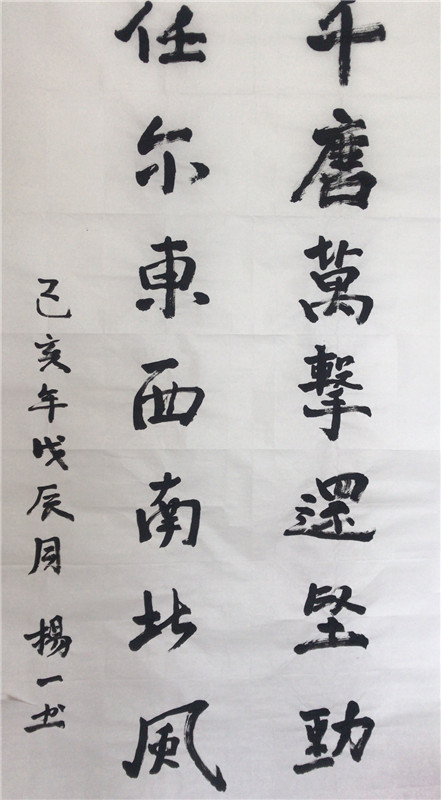 千磨萬擊還堅勁
任尔東西南北風
己亥年戊辰月 楊一书